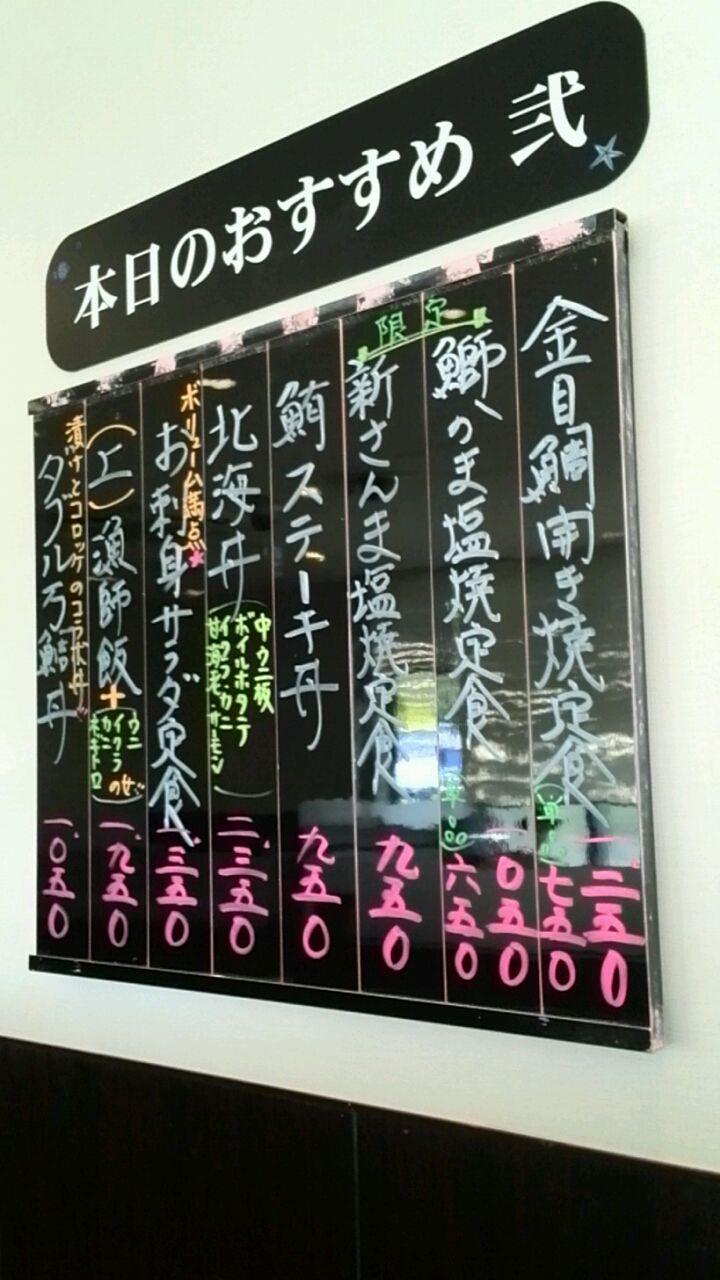 本日のおすすめ 弐
金目鯛開き焼定食
一、二五0
単品
七五0
限定
鰤かま塩焼定食
一、0五0
単品
六五0
新さんま塩焼定食
九五0
鮪ステーキ丼
九五0
北海丼
中ウニ板
ボイルホタテ
イクラ・カニ
甘海老・サーモン
二、三五0
ボリューム満点
お刺身サラダ定食
一、三五0
(上)漁師飯
+
ウニ
イクラ
カニ
ネギトロ
のせ
一、九五0
漬けとコロッケのコラボ丼
ダブル万鯛丼
一、0五0